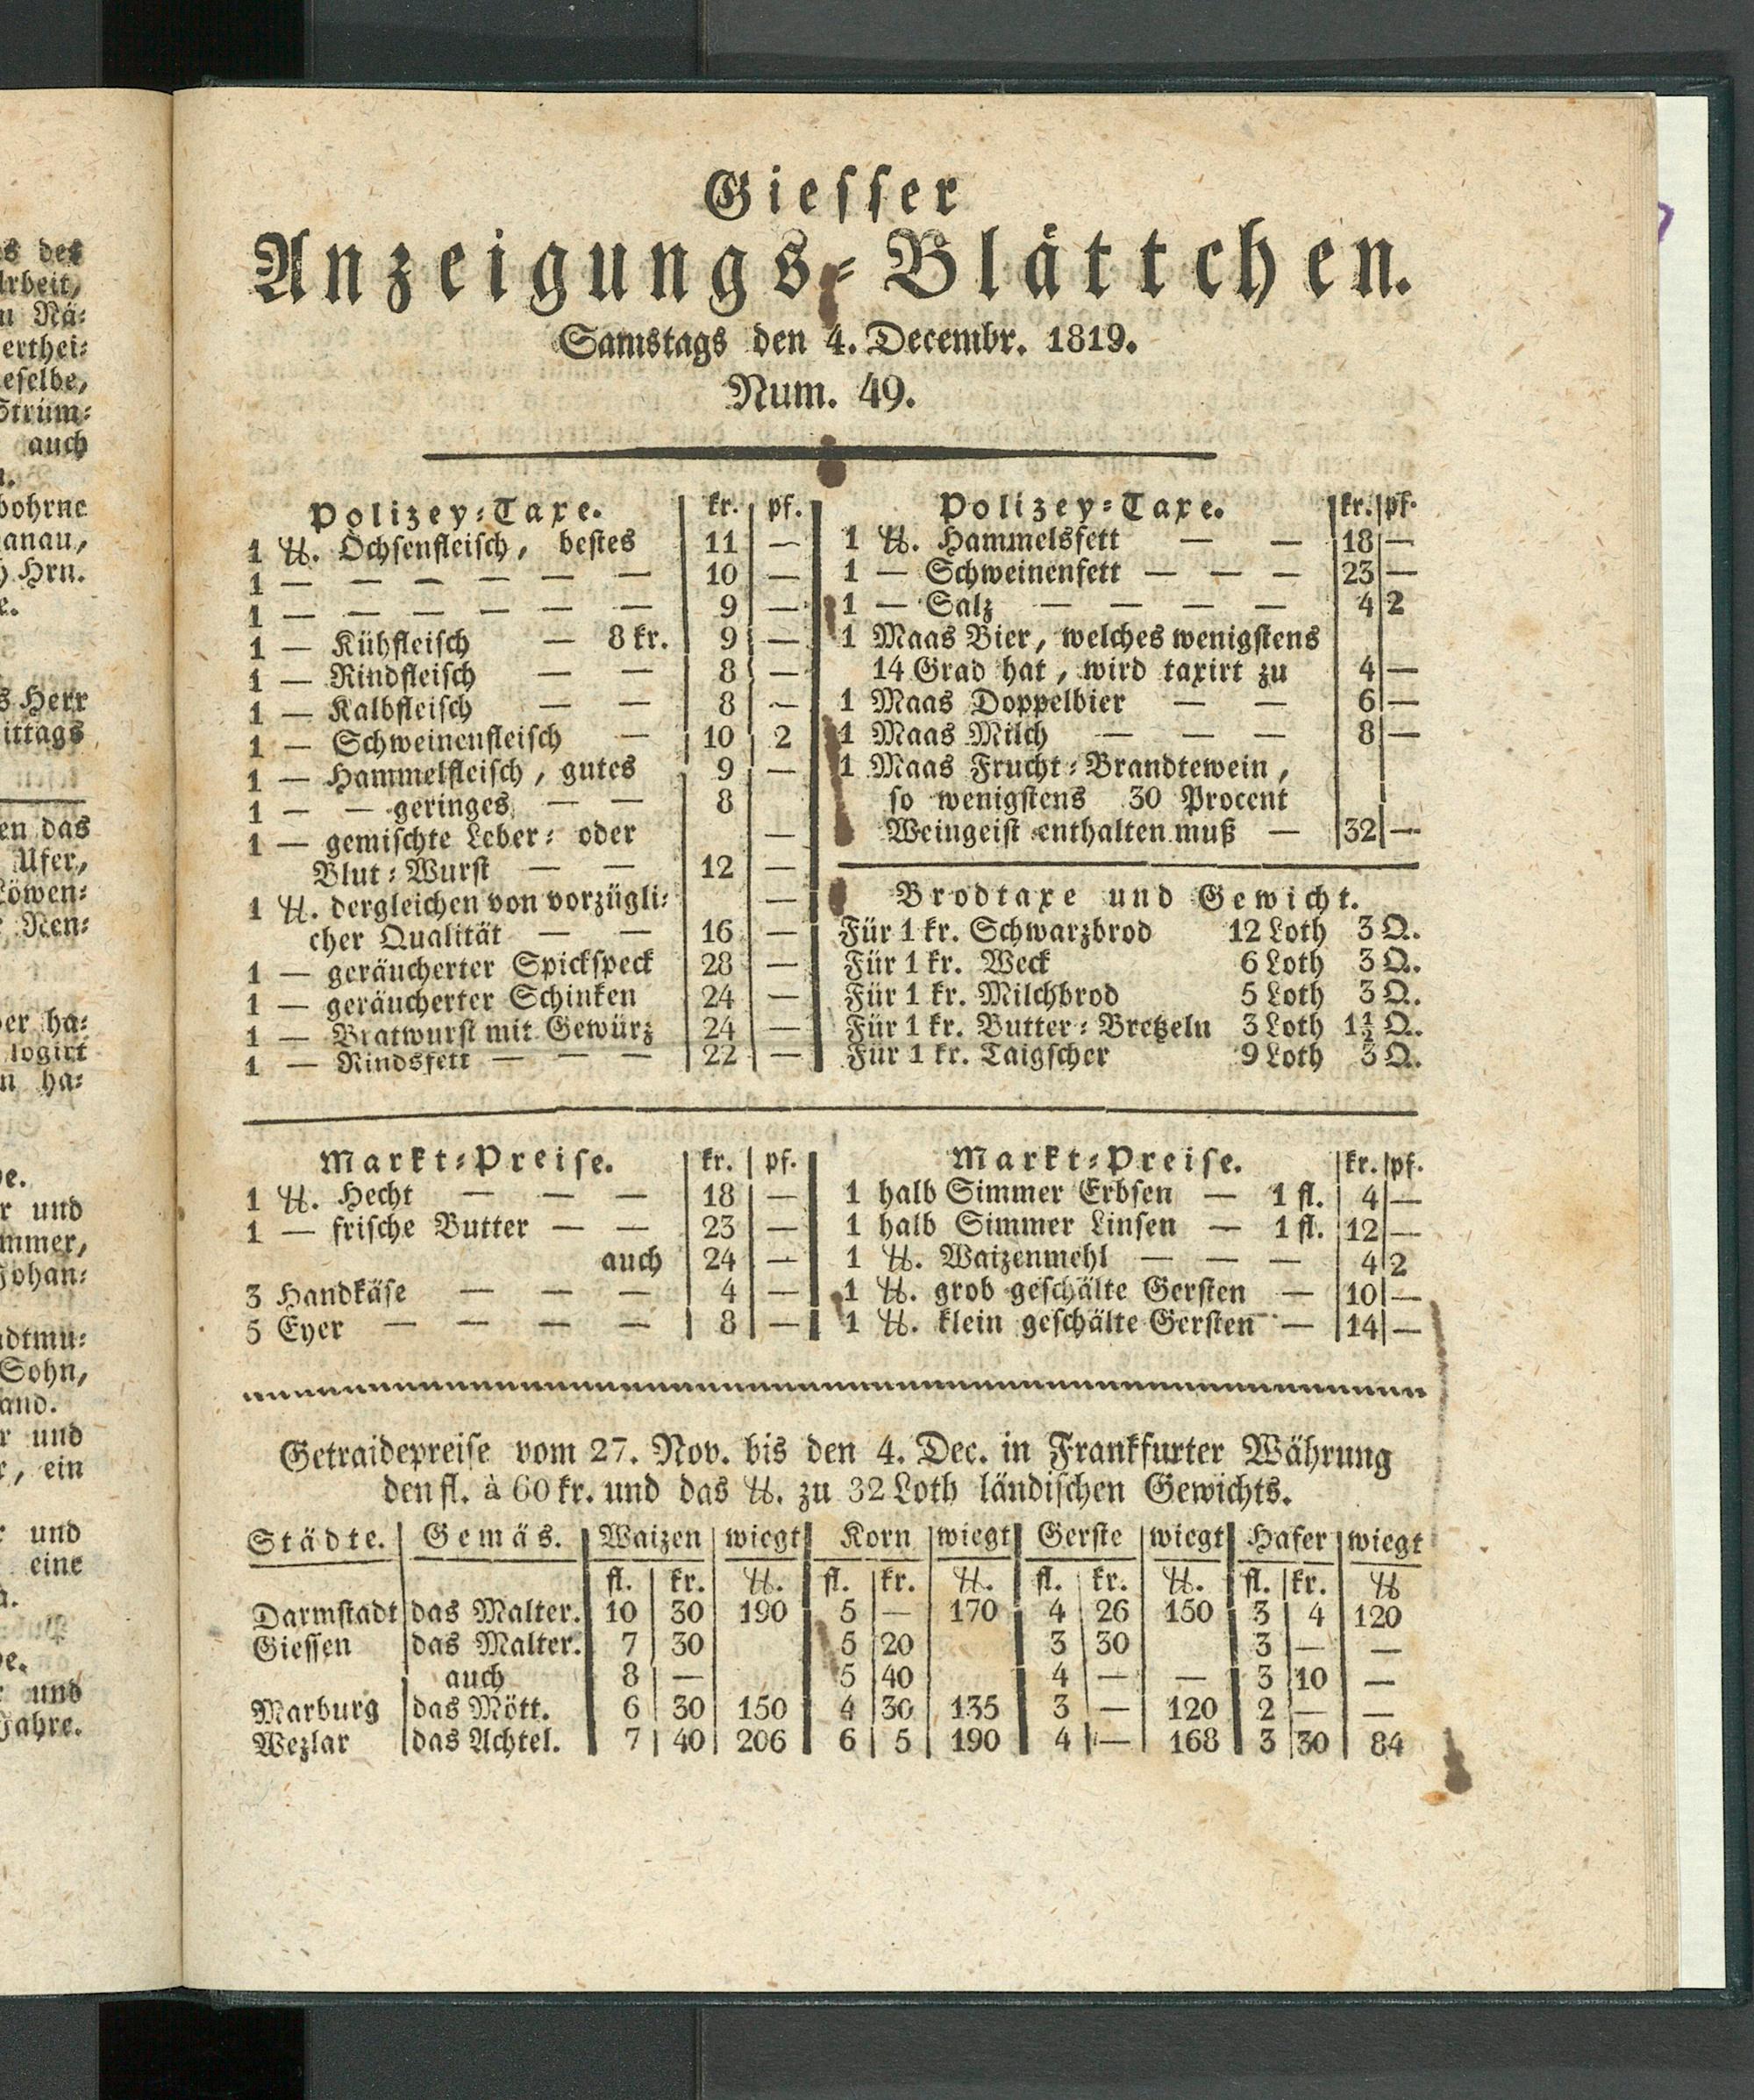 Giesser
Anzeigungs-Blättchen.
Samstags den 4. Decembr. 1819.
Num. 49.
Polizey-Taxe. kr. pf.
1 ℔. Ochsenfleisch, bestes 11 —
1 — — — — — — 10 —
1 — — — — — — 9 —
1 — Kühfleisch — 8 kr. 9 —
1 — Rindfleisch — — 8 —
1 — Kalbfleisch — — 8 —
1 — Schweinenfleisch — 10 2
1 — Hammelfleisch, gutes 9 —
1 — — geringes — — 8
1 — gemischte Leber- oder —
Blut-Wurst — — 12 —
1 ℔. dergleichen von vorzügli- —
cher Qualität — — 16 —
1 — geräucherter Spickspeck 28 —
1 — geräucherter Schinken 24 —
1 — Bratwurst mit Gewürz 24 —
1 — Rindsfett — — — 22 —
Polizey-Taxe. kr. pf.
1 ℔. Hammelsfett — — 18 —
1 — Schweinenfett — — — 23 —
1 — Salz — — — — 4 2
1 Maas Bier, welches wenigstens
14 Grad hat, wird taxirt zu 4 —
1 Maas Doppelbier — — 6 —
1 Maas Milch — — — 8 —
1 Maas Frucht-Brandtewein,
so wenigstens 30 Procent
Weingeist enthalten muß — 32 —
Brodtaxe und Gewicht.
Für 1 kr. Schwarzbrod 12 Loth 3 Q.
Für 1 kr. Weck 6 Loth 3 Q.
Für 1 kr. Milchbrod 5 Loth 3 Q.
Für 1 kr. Butter-Bretzeln 3 Loth 1½ Q.
Für 1 kr. Taigscher 9 Loth 3 Q.
Markt-Preise. kr. pf.
1 ℔. Hecht — — — 18 —
1 — frische Butter — — 23 —
auch 24 —
3 Handkäse — — — 4 —
5 Eyer — — — — 8 —
Markt-Preise. kr. pf.
1 halb Simmer Erbsen — 1 fl. 4 —
1 halb Simmer Linsen — 1 fl. 12 —
1 ℔. Waizenmehl — — — 4 2
1 ℔. grob geschälte Gersten — 10 —
1 ℔. klein geschälte Gersten — 14 —
Getraidepreise vom 27. Nov. bis den 4. Dec. in Frankfurter Währung
den fl. à 60 kr. und das ℔. zu 32 Loth ländischen Gewichts.
Städte. Gemäs. Waizen wiegt Korn wiegt Gerste wiegt Hafer wiegt
fl. kr. ℔. fl. kr. ℔. fl. kr. ℔. fl. kr. ℔
Darmstadt das Malter. 10 30 190 5 — 170 4 26 150 3 4 120
Giessen das Malter. 7 30 5 20 3 30 3 — —
auch 8 — 5 40 4 — — 3 10 —
Marburg das Mött. 6 30 150 4 30 135 3 — 120 2 — —
Wezlar das Achtel. 7 40 206 6 5 190 4 — 168 3 30 84